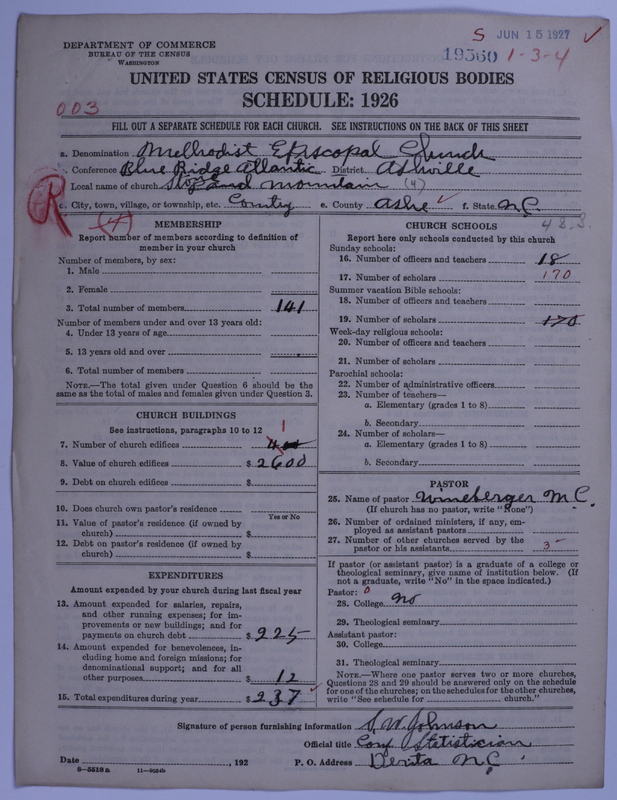 S JUN 15 1927 ✓
DEPARTMENT OF COMMERCE
BUREAU OF THE CENSUS
WASHINGTON
19560 1-3-4
UNITED STATES CENSUS OF RELIGIOUS BODIES
SCHEDULE: 1926
003
FILL OUT A SEPARATE SCHEDULE FOR EACH CHURCH. SEE INSTRUCTIONS ON THE BACK OF THIS SHEET
a. Denomination Methodist Episcopal Church
b. Conference Blue Ridge Atlantic District Ashville
Local name of church and Mountain (4)
R c. City, town, village, or township, etc. Country e. County Ashe ✓ f. State N.C.
(4)
MEMBERSHIP
Report number of members according to definition of
member in your church
Number of members, by sex:
1. Male
2. Female
3. Total number of members 141
Number of members under and over 13 years old:
4. Under 13 years of age
5. 13 years old and over
6. Total number of members
NOTE.—The total given under Question 6 should be the
same as the total of males and females given under Question 3.
CHURCH BUILDINGS
See instructions, paragraphs 10 to 12
7. Number of church edifices 1
8. Value of church edifices $ 2600
9. Debt on church edifices $
10. Does church own pastor's residence
Yes or No
11. Value of pastor's residence (if owned by
church) $
12. Debt on pastor's residence (if owned by
church) $
EXPENDITURES
Amount expended by your church during last fiscal year
13. Amount expended for salaries, repairs,
and other running expenses; for im-
provements or new buildings; and for
payments on church debt $ 225
14. Amount expended for benevolences, in-
cluding home and foreign missions; for
denominational support; and for all
other purposes $ 12
15. Total expenditures during year $ 237 ✓
CHURCH SCHOOLS 42.3.
Report here only schools conducted by this church
Sunday schools:
16. Number of officers and teachers 18
17. Number of scholars 170
Summer vacation Bible schools:
18. Number of officers and teachers
19. Number of scholars 170
Week-day religious schools:
20. Number of officers and teachers
21. Number of scholars
Parochial schools:
22. Number of administrative officers
23. Number of teachers—
a. Elementary (grades 1 to 8)
b. Secondary
24. Number of scholars—
a. Elementary (grades 1 to 8)
b. Secondary
PASTOR
25. Name of pastor Wineberger M.C.
(If church has no pastor, write "None")
26. Number of ordained ministers, if any, em-
ployed as assistant pastors
27. Number of other churches served by the
pastor or his assistants 3
If pastor (or assistant pastor) is a graduate of a college or
theological seminary, give name of institution below. (If
not a graduate, write "No" in the space indicated.)
Pastor: 0
28. College No
29. Theological seminary
Assistant pastor:
30. College
31. Theological seminary
NOTE.—Where one pastor serves two or more churches,
Questions 28 and 29 should be answered only on the schedule
for one of the churches; on the schedules for the other churches,
write "See schedule for church."
Signature of person furnishing information S. W. Johnson
Official title Conf Statistician
Date , 192 P. O. Address Derita N.C.
8—5518 a 11—9024b